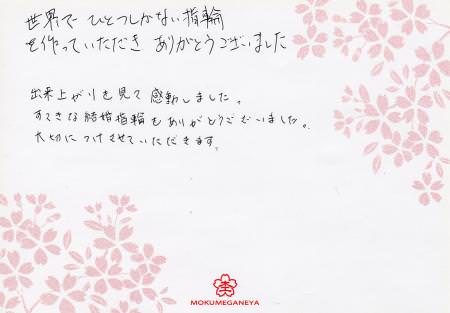 世界で ひとつしかない指輪
を作っていただき ありがとうございました
出来上がりを見て 感動しました。
すてきな結婚指輪を ありがとうございました。
大切につけさせていただきます。
杢
MOKUMEGANEYA